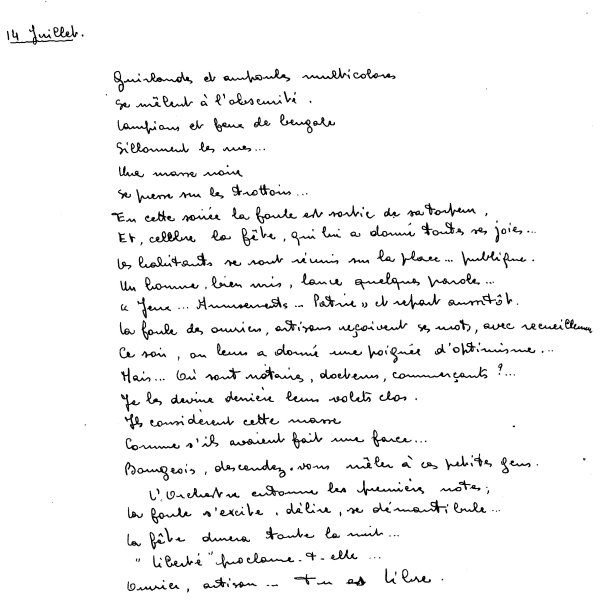 14 Juillet.
Guirlandes et ampoules multicolores
Se mêlent à l'obscurité.
Lampions et feux de bengale
Sillonnent les rues...
Une masse noire
Se presse sur les trottoirs...
En cette soirée la foule est sortie de sa torpeur,
Et, célèbre la fête, qui lui a donné toutes ses joies...
Les habitants se sont réunis sur la place... publique.
Un homme, bien mis, lance quelques parole...
"Jeux... Amusements... Patrie" et repart aussitôt.
La foule des ouvriers, artisans reçoivent ses mots, avec recueillement
Ce soir, on leurs a donné une poignée d'optimisme...
Mais... Où sont notaires, docteurs, commerçants ?...
Je les devine derrière leurs volets clos.
Ils considèrent cette masse
Comme s'ils avaient fait une farce...
Bourgeois, descendez-vous mêler à ces petites gens.
L'Orchestre entonne les premières notes;
La foule s'excite, délire, se démantibule...
La fête durera toute la nuit...
"Liberté" proclame-t-elle...
Ouvrier, artisan... tu es libre.